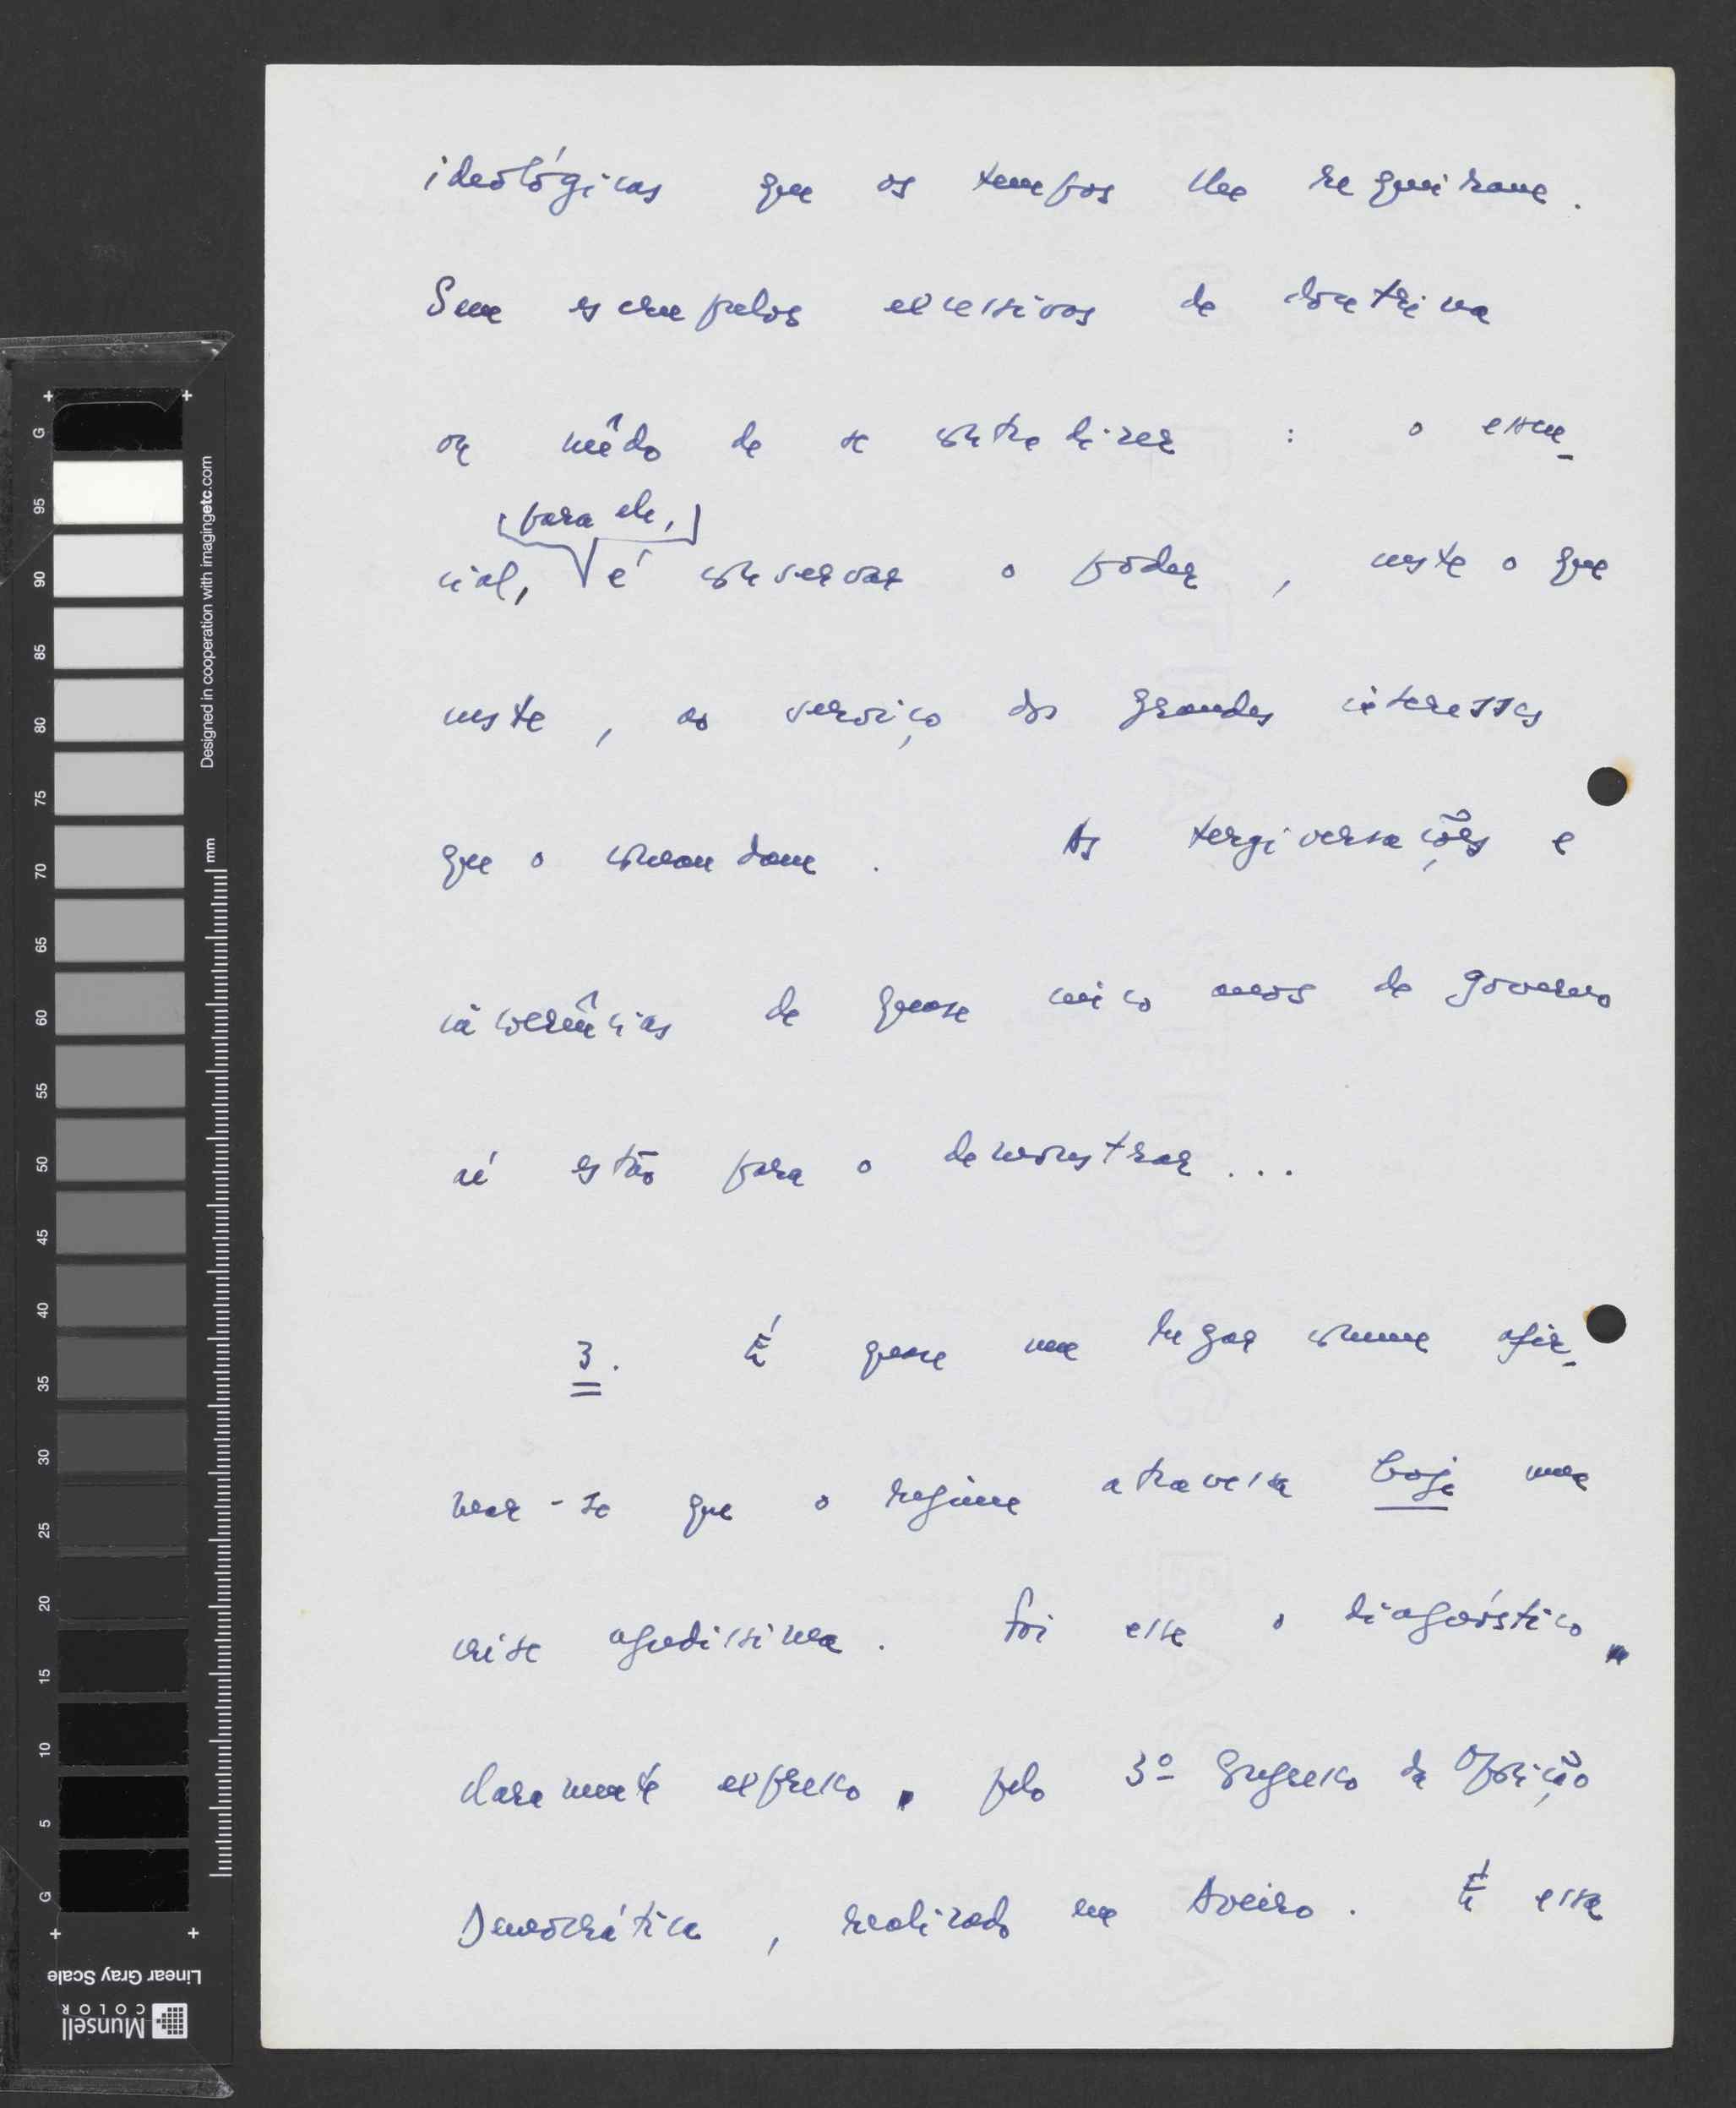 ideológicas que os tempos lhe requeiram.
Sem escrupulos excessivos de doutrina
ou mêdo de se contradizer : o essen-
[para ele,]
cial, é conservar o poder, custe o que
custe, ao serviço dos grandes interesses
que o comandam. As tergiversações e
incoerências de quase cinco anos de governo
aí estão para o demonstrar...
3. É quase um lugar comum afir-
mar-se que o regime atravessa hoje uma
crise agudissima. Foi esse o diagnóstico
claramente expresso pelo 3º Congresso da Oposição
Democrática, realizado em Aveiro. É essa
G
95
90
85
80
75
70
65
60
55
50
45
40
35
30
25
20
15
10
5
G
Designed in cooperation with imagingetc.com
mm
Linear Gray Scale
Munsell
COLOR